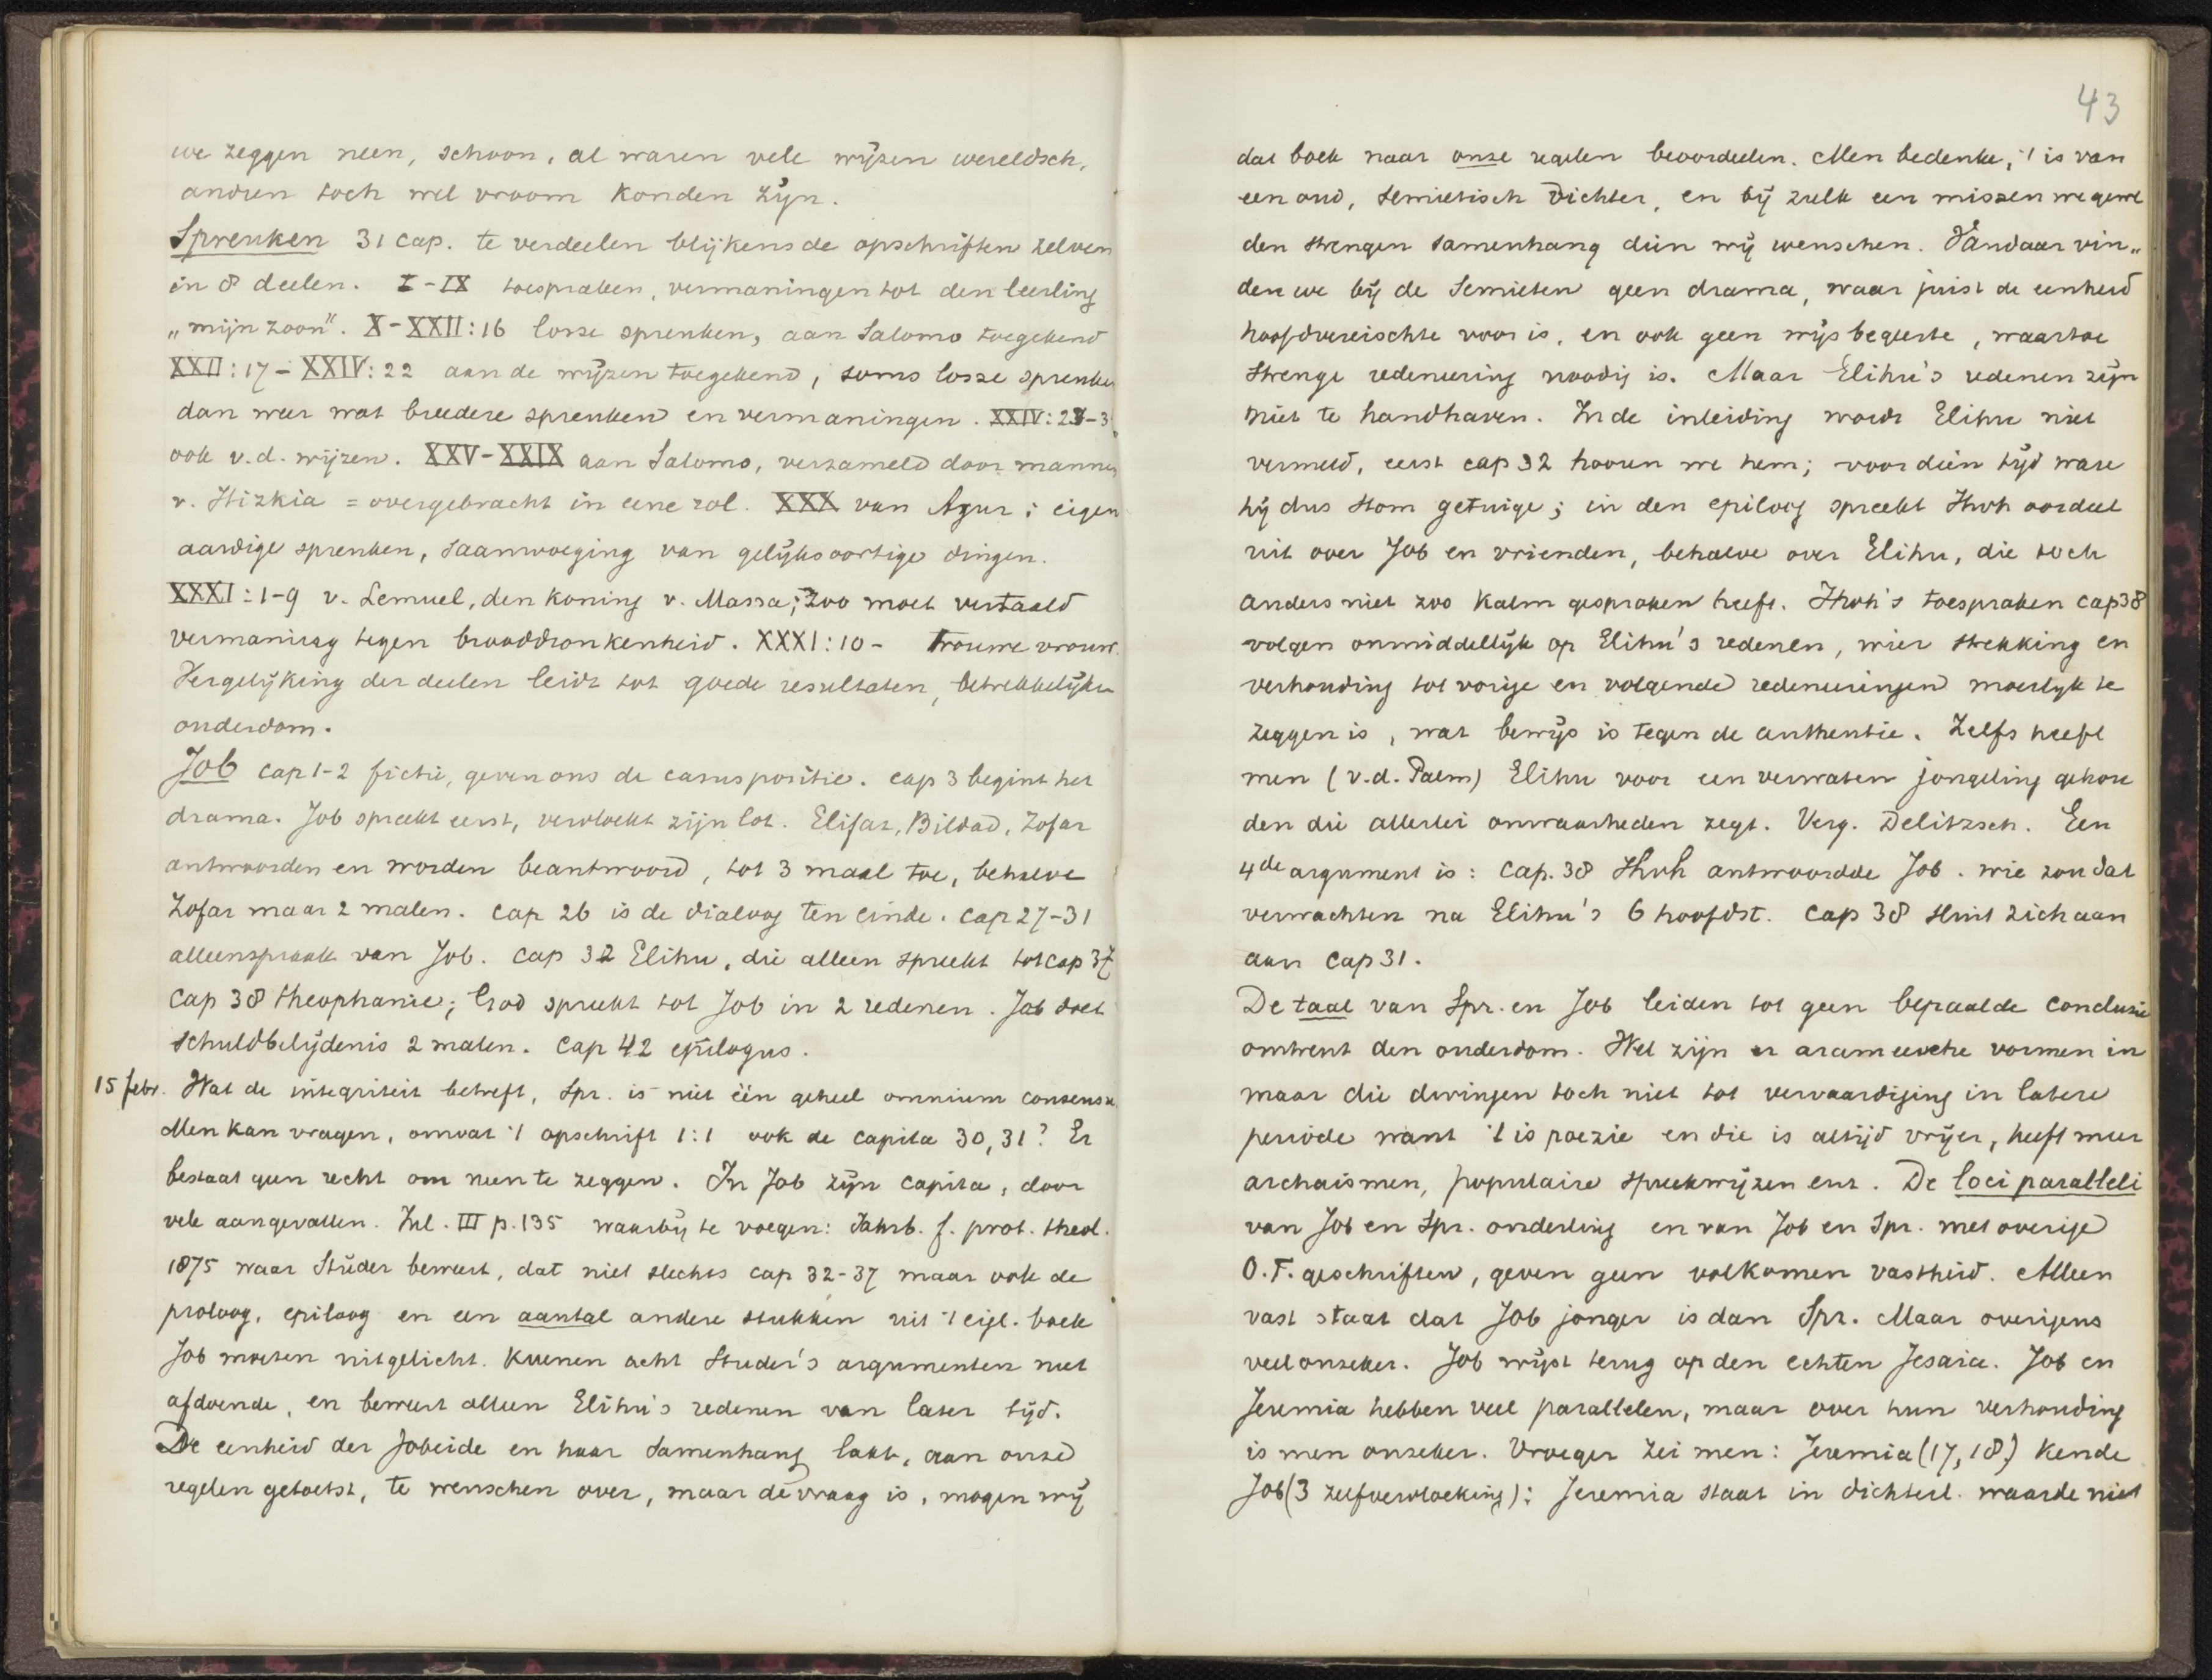 we zeggen neen, schoon, al waren vele wijzen wereldsch,
andren toch wel vroom konden zijn.
Spreuken 31 cap. te verdeelen blijkens de opschriften zelven
in 8 deelen. I-IX toespraken, vermaningen tot den leerling
„mijn zoon". X-XXII:16 losse spreuken, aan Salomo toegekend
XXII:17-XXIV:22 aan de wijzen toegekend, soms losse spreuken
dan weer wat breedere spreuken en vermaningen. XXIV:23-3
ook v.d. wijzen. XXV-XXIX aan Salomo, verzameld door mannen
v. Hizkia = overgebracht in eene rol. XXX van Agur; eigen
aardige spreuken, saamvoeging van gelijksoortige dingen.
XXXI:1-9 v. Lemuel, den koning v. Massa; zoo moet vertaald
vermaning tegen brooddronkenheid. XXXI:10- Trouwe vrouw.
Vergelijking der deelen leidt tot goede resultaten, betrekkelijken
ouderdom.
Job cap 1-2 fictie, geven ons de casus positie. cap 3 begint het
drama. Job spreekt eerst, vervloekt zijn lot. Elifaz, Bildad, Zofar
antwoorden en worden beantwoord, tot 3 maal toe, behalve
Zofar maar 2 malen. cap 26 is de dialoog ten einde. cap 27-31
alleenspraak van Job. cap 32 Elihu, die alleen spreekt tot cap 37
Cap 38 theophanie; God spreekt tot Job in 2 redenen. Job doet
schuldbelijdenis 2 malen. Cap 42 epilogus.
15 febr. Wat de integriteit betreft, Spr. is niet één geheel omnium consensu.
Men kan vragen, omvat 't opschrift 1:1 ook de capita 30,31? Er
bestaat geen recht om neen te zeggen. In Job zijn capita, door
vele aangevallen. Inl. III p.135 waarbij te voegen: Jahrb. f. prot. theol.
1875 waar Studer beweert, dat niet slechts cap 32-37 maar ook de
proloog, epiloog en een aantal andere stukken uit 't eigl. boek
Job moeten uitgelicht. Kuenen acht Studer's argumenten niet
afdoende, en beweert alleen Elihu's redenen van later tijd.
De eenheid der Jobeide en haar samenhang laat, aan onze
regelen getoetst, te wenschen over, maar de vraag is, mogen wij
43
dat boek naar onze regelen beoordeelen. Men bedenke, 't is van
een oud, semietisch dichter, en bij zulk een missen we gewel
den strengen samenhang dien wij wenschen. Vandaar vin„
den we bij de Semieten geen drama, waar juist de eenheid
hoofdvereischte voor is, en ook geen wijsbegeerte, waartoe
strenge redeneering noodig is. Maar Elihu's redenen zijn
niet te handhaven. In de inleiding wordt Elihu niet
vermeld, eerst cap 32 hooren we hem; voor dien tijd ware
hij dus stom getuige; in den epiloog spreekt Jhvh oordeel
uit over Job en vrienden, behalve over Elihu, die toch
anders niet zoo kalm gesproken heeft. Jhvh's toespraken cap 38
volgen onmiddellijk op Elihu's redenen, wier strekking en
verhouding tot vorige en volgende redeneeringen moeilijk te
zeggen is, wat bewijs is tegen de authentie. Zelfs heeft
men (v.d. Palm) Elihu voor een verwaten jongeling gehou
den die allerlei onwaarheden zegt. Verg. Delitzsch. Een
4de argument is: Cap. 38 Jhvh antwoordde Job. wie zou dat
verwachten na Elihu's 6 hoofdst. Cap 38 sluit zich aan
aan Cap 31.
De taal van Spr. en Job leiden tot geen bepaalde conclusie
omtrent den ouderdom. Wel zijn er arameesche vormen in
maar die dwingen toch niet tot vervaardiging in latere
periode want 't is poezie en die is altijd vrijer, heeft meer
archaismen, populaire spreekwijzen enz. De loci paralleli
van Job en Spr. onderling en van Job en Spr. met overige
O.T. geschriften, geven geen volkomen vastheid. Alleen
vast staat dat Job jonger is dan Spr. Maar overigens
veel onzeker. Job wijst terug op den echten Jesaia. Job en
Jeremia hebben veel parallelen, maar over hun verhouding
is men onzeker. Vroeger zei men: Jeremia (17,18) kende
Job (3 zelfvervloeking): Jeremia staat in dichterl. waarde niet